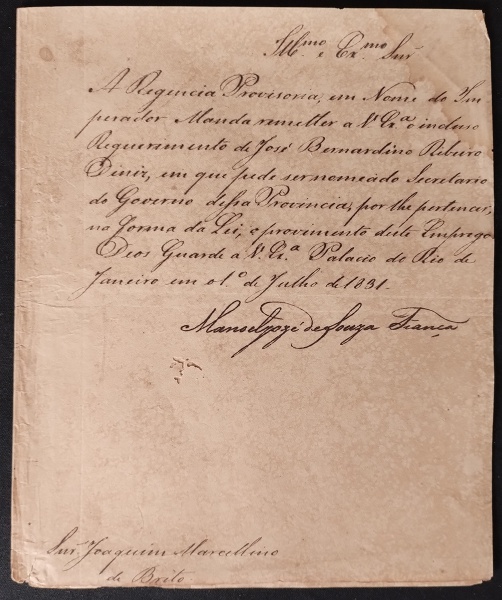 Ill.mo e Ex.mo Snr
A Regencia Provisoria, em Nome do Im-
perador Manda remetter a V. Ex.a o incluso
Requerimento de José Bernardino Ribeiro
Diniz, em que pede ser nomeado Secretario
do Governo dessa Provincia, por lhe pertencer,
na forma da Lei, o provimento deste Emprego
Deos Guarde a V. Ex.a Palacio do Rio de
Janeiro em 01.º de Julho de 1831.
Manoel José de Souza França
Snr. Joaquim Marcellino
de Brito